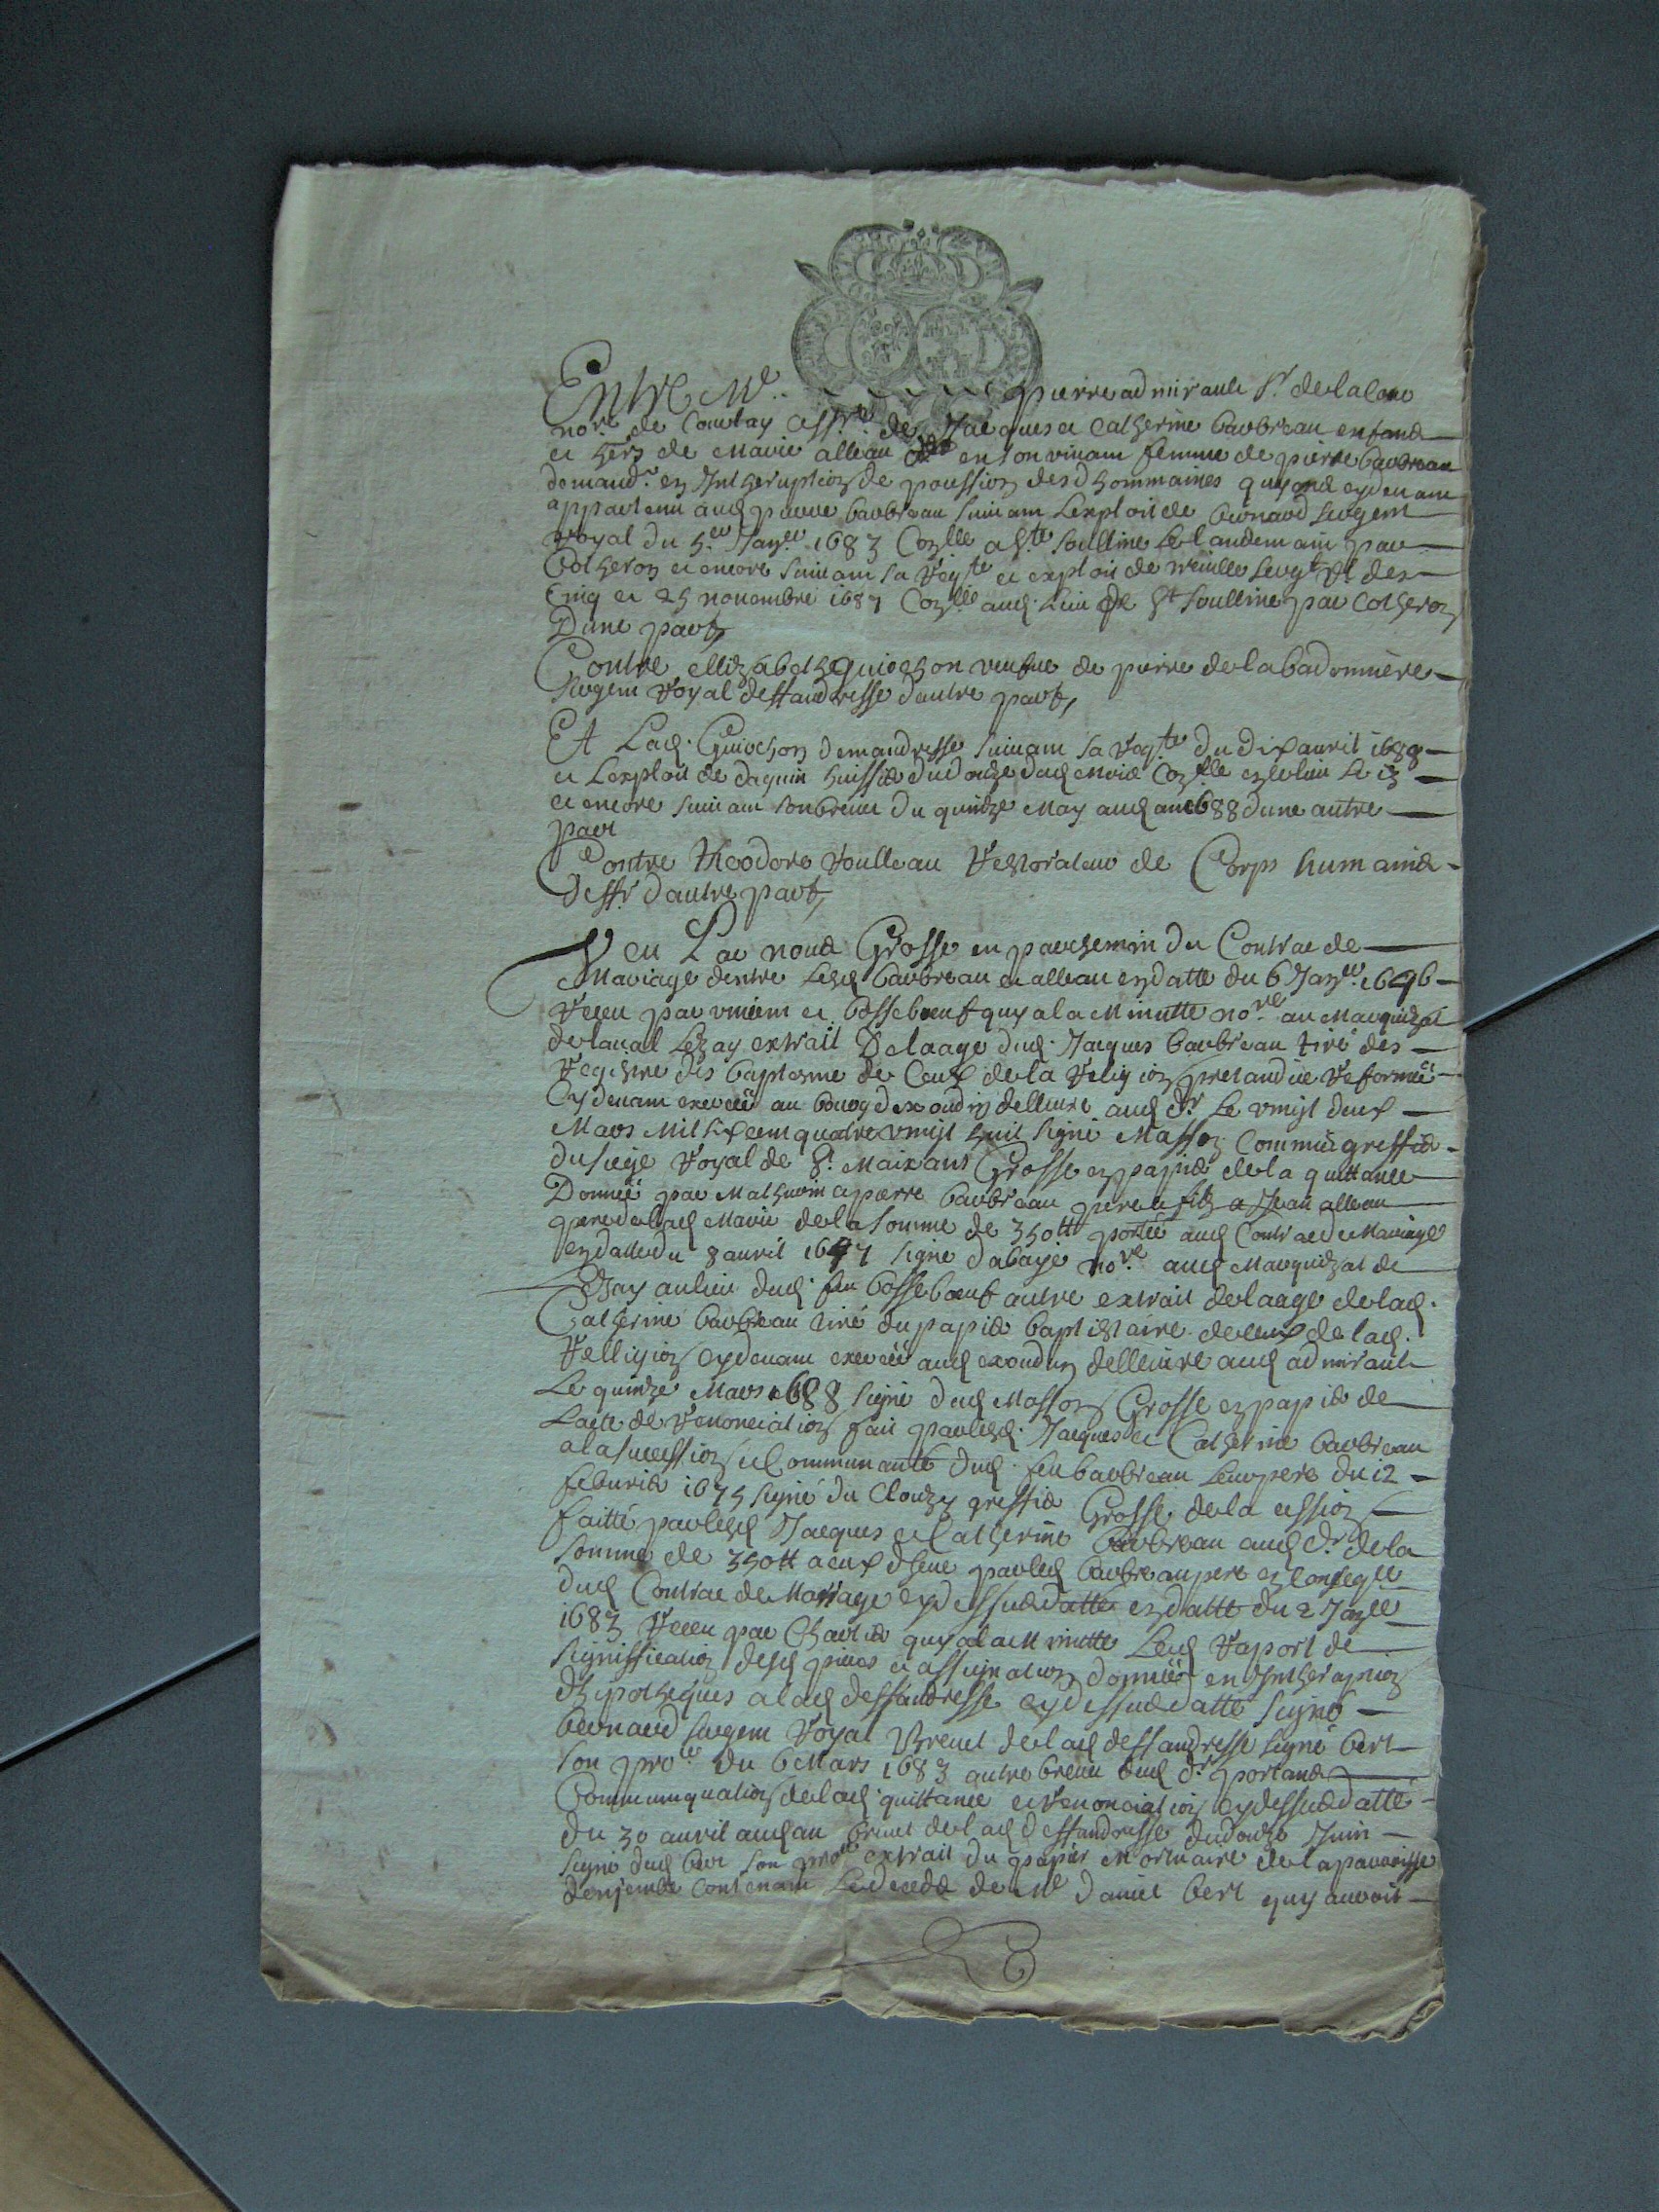 Entre Me. pierre admirault Sr. de la
nore. de Couday de Jacques et Catherine barbreau enfans
et hers de Marie alleau en son vivant femme de pierre barbreau
demandr. en Intheruption de poussion des dhommaines quy ont cydevant
appartenu aud pierre barbreau suivant lexploit de bernard sergent
royal du 5er Janer. 1683 Conlle a Ste Soulline le landemain par
Cotheron et encore suivant sa reqte et exploit de sergt Rl des
Cinq et 25 novembre 1687 Conlle aud. lieu de St Soulline par Cotheron
Dune part,
Contre ellizabeth Guiochon veufve de pierre de la badonnière
sergent royal deffanderesse dautre part,
Et Lad. Guiochon demandresse suivant sa reqte du dix avril 1688
et Lexploit de daguin huissier du douze dud mois Conlle le 13
et encore suivant son brevet du quinze May aud an 1688 dune autre
part
Contre theodore roulleau restorateur de Corps humains
deffr. dautre part,
Veu Par nous Grosse en parchemin du Contrac de
Mariage dentre lesd barbreau et alleau en datte du 6 Janer. 1646
receu par et bosseboeuf quy a la Minutte nore. au Marquizat
de laval Lezay extrait De laage dud. Jacques barbreau tiré des
registre des baptesme de Ceux de la relligion pretandue reformée
Cy devant exercée au bourg dexoudun dellivré aud dr Le vingt deux
Mars Mil six cent quatre vingt huit signé Masson Commis greffier
du siege royal de St. Maixant Grosse en papier de la quittance
Donnée par Mathurin et pierre barbreau pere et filz a Jean alleau
pere de lad Marie de la somme de 350tt portée aud Contrac de Mariage
en datte du 8 avril 1647 signé dabaye nore. aud Marquizat de
Lezay au lieu dud. feu bosseboeuf autre extrait de laage de lad.
Catherine barbreau tiré du papier baptistaire de ceux de lad.
relligion cydevant exercée aud exoudun dellivré aud admirault
Le quinze Mars 1688 signé dud Masson Grosse en papier de
Lacte de renonciation fait par lesd. Jacques et Catherine barbreau
a la succession et Communauté dud. feu barbreau leur pere du 12
febvrier 1675 signé du Clouzy greffier Grosse de la cession
faitte par lesd Jacques et Catherine barbreau aud dr. de la
somme de 350tt a eux dheue par led barbreau pere en conseqce
dud Contrac de Mariage cy dessus datté en datte du 2 Janer
1683 receu par Charlier quy a la Minutte Led raport de
signiffication desd pieces et assignation donnée en Intheruption
dhipotheques a lad deffandresse cy dessus datté signé
bernard sergent royal brevet de lad deffandresse signé bert
son procr du 6 Mars 1683 autre brevet dud dr. portant
Communiquation de lad quittance et renonciation cy dessus datté
du 30 avril aud an brevet de lad deffandresse du douze Juin
signé dud bert son procr extrait du papier Mortuaire de la parroisse
contenant Le decedz de Me daniel bert quy auroit